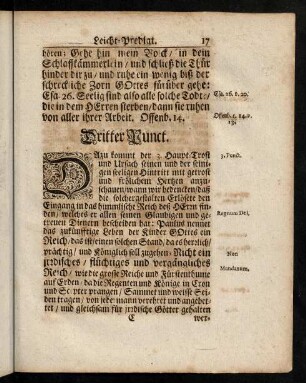 Leicht-Predigt. 17
hören: Gehe hin mein Volck / in dein
Schlaffkämmerlein / und schließ die Thür
hinder dir zu / und ruhe ein wenig biß der
schreckliche Zorn GOttes fürüber gehe:
Esa. 26. Seelig sind also alle solche Todte /
die in dem HErren sterben / dann sie ruhen
von aller ihrer Arbeit. Offenb. 14.
Esa. 26. v. 20.
Offenb. c. 14. v.
13.
Dritter Punct.
DAzu kommt der 3. Haupt-Trost
und Ursach seinen und der seinigen
seeligen Hintritt mit getrost
und frölichem Hertzen anzuschauen /
wann wir bedencken / daß
die solcher Erlöste den
Eingang in das himmlische Reich des HErrn finden /
welches er allen seinen Glaubigen und getreuen
Dienern bescheiden hat: Paulus nennet
das zukünfftige Leben der Kinder GOttes ein
Reich / das ist einen solchen Stand / da es herrlich /
prächtig / und Königlich soll zugehen: Nicht ein
irrdisches / flüchtiges und vergängliches
Reich / wie die grosse Reiche und Fürstenthume
auf Erden / da die Regenten und Könige in Cron
und Scepter prangen / Sammet und weisse Seiden
tragen / von jedermann verehret und angebettet /
und gleichsam für irrdische Götter gehalten
3. Punct.
Regnum Dei,
Non
Mundanum,
C wer-